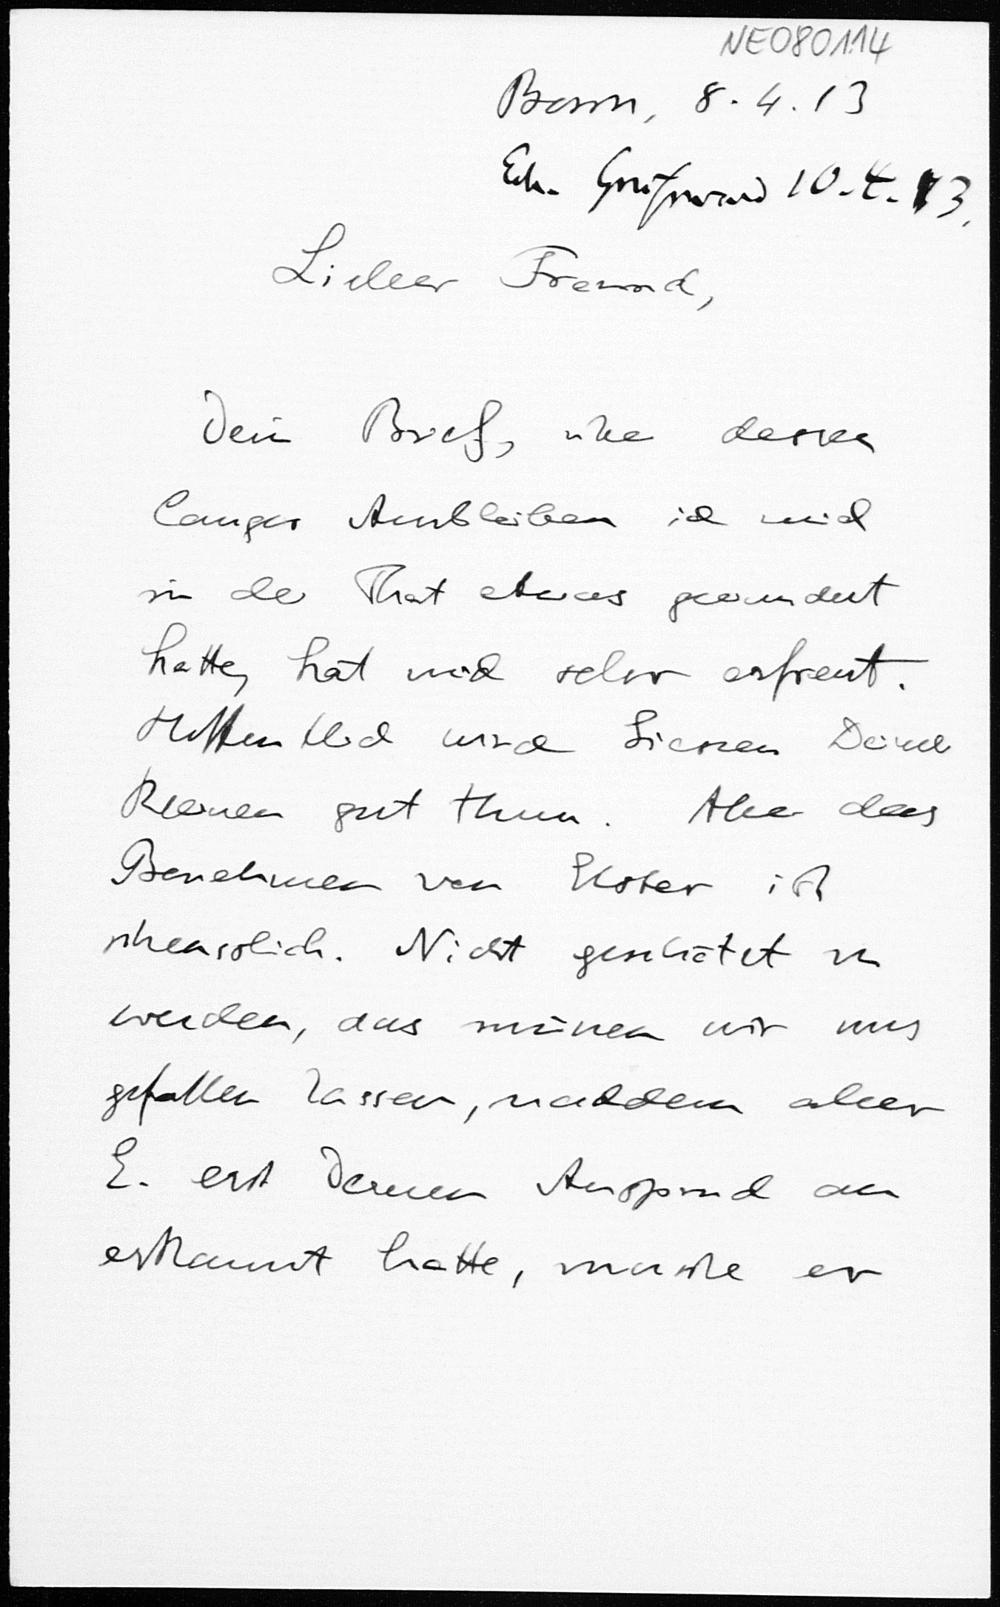 NE080114
Bonn, 8.4.13
Erh. Greifswald 10.4.13.
Lieber Freund,
Dein Brief, über dessen
langes Ausbleiben ich mich
in der That etwas gewundert
hatte, hat mich sehr erfreut.
Hoffentlich wird Deiner
gut thun. Aber das
Benehmen von Elster ist
scheusslich. Nicht geschätzt zu
werden, das müssen wir uns
gefallen lassen, nachdem aber
E. erst Deinen Anspruch an
erkannt hatte, musste er